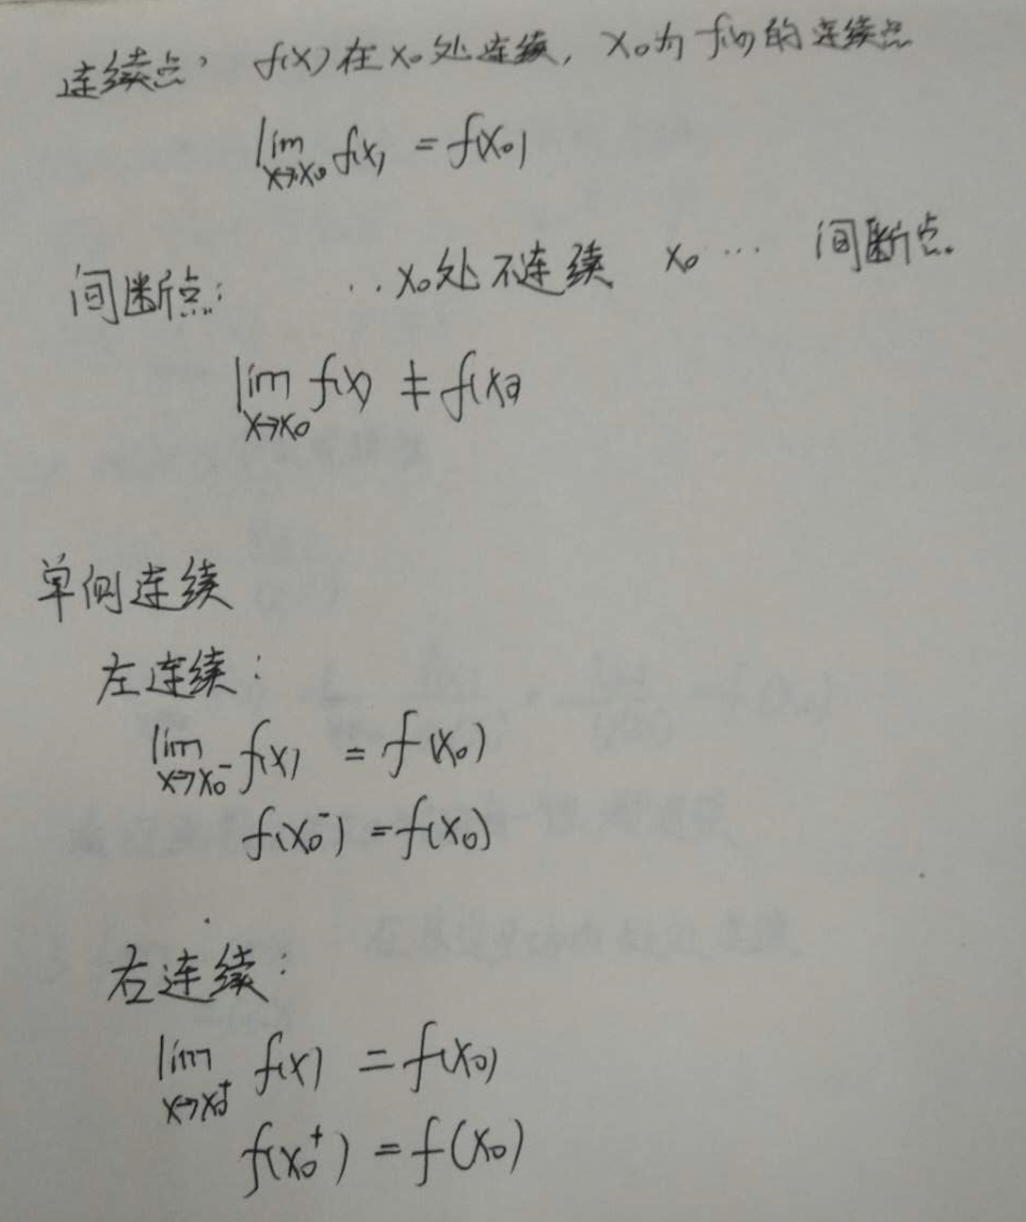 连续点, f(x)在x₀处连续, x₀为f(x)的连续点
lim f(x) = f(x₀)
x→x₀
间断点: ‥x₀处不连续 x₀ … 间断点.
lim f(x) ≠ f(x₀)
x→x₀
单侧连续
左连续:
lim f(x) = f(x₀)
x→x₀⁻
f(x₀⁻) = f(x₀)
右连续:
lim f(x) = f(x₀)
x→x₀⁺
f(x₀⁺) = f(x₀)